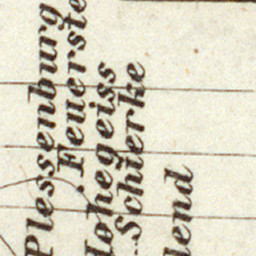 Plessenburg
Feuerste
Hohegeiss
Schierke
lend